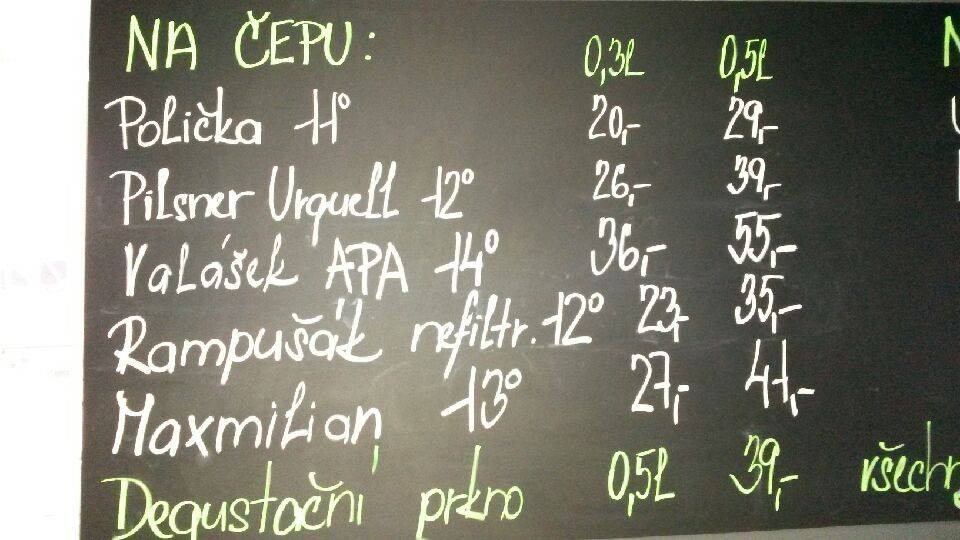 NA ČEPU: 0,3l 0,5l
Polička 11° 20,- 29,-
Pilsner Urquell 12° 26,- 39,-
Valášek APA 14° 36,- 55,-
Rampušák nefiltr. 12° 23,- 35,-
Maxmilian 13° 27,- 41,-
Degustační prkno 0,5l 39,-